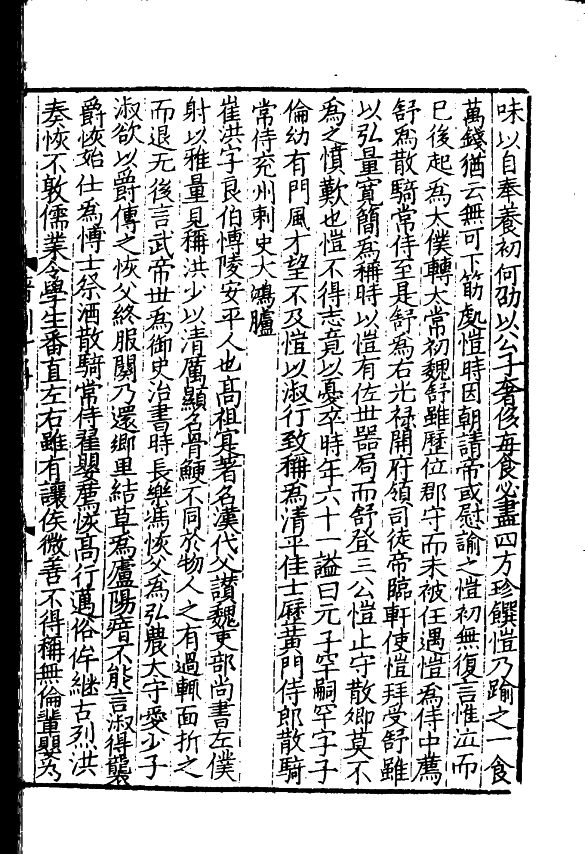 味以自奉養初何劭以公子奢侈每食必盡四方珍饌愷乃踰之一食
萬錢猶云無可下筯處愷時因朝請帝或慰諭之愷初無復言惟泣而
已後起為太僕轉太常初魏舒雖歷位郡守而未被任遇愷為侍中薦
舒為散騎常侍至是舒為右光祿開府領司徒帝臨軒使愷拜受舒雖
以弘量寬簡為稱時以愷有佐世器局而舒登三公愷止守散卿莫不
為之憤歎也愷不得志竟以憂卒時年六十一謚曰元子罕嗣罕字子
倫幼有門風才望不及愷以淑行致稱為清平佳士歷黃門侍郎散騎
常侍兖州刺史大鴻臚
崔洪字良伯愽陵安平人也髙祖寔著名漢代父讃魏吏部尚書左僕
射以雅量見稱洪少以清厲顯名骨鯁不同於物人之有過輒面折之
而退无後言武帝世為御史治書時長樂馮恢父為弘農太守愛少子
淑欲以爵傳之恢父終服闋乃還鄉里結草為廬陽瘖不能言淑得襲
爵恢始仕為愽士祭酒散騎常侍翟嬰薦恢髙行邁俗侔継古烈洪
奏恢不敦儒業令學生番直左右雖有讓侯微善不得稱無倫輩嬰為